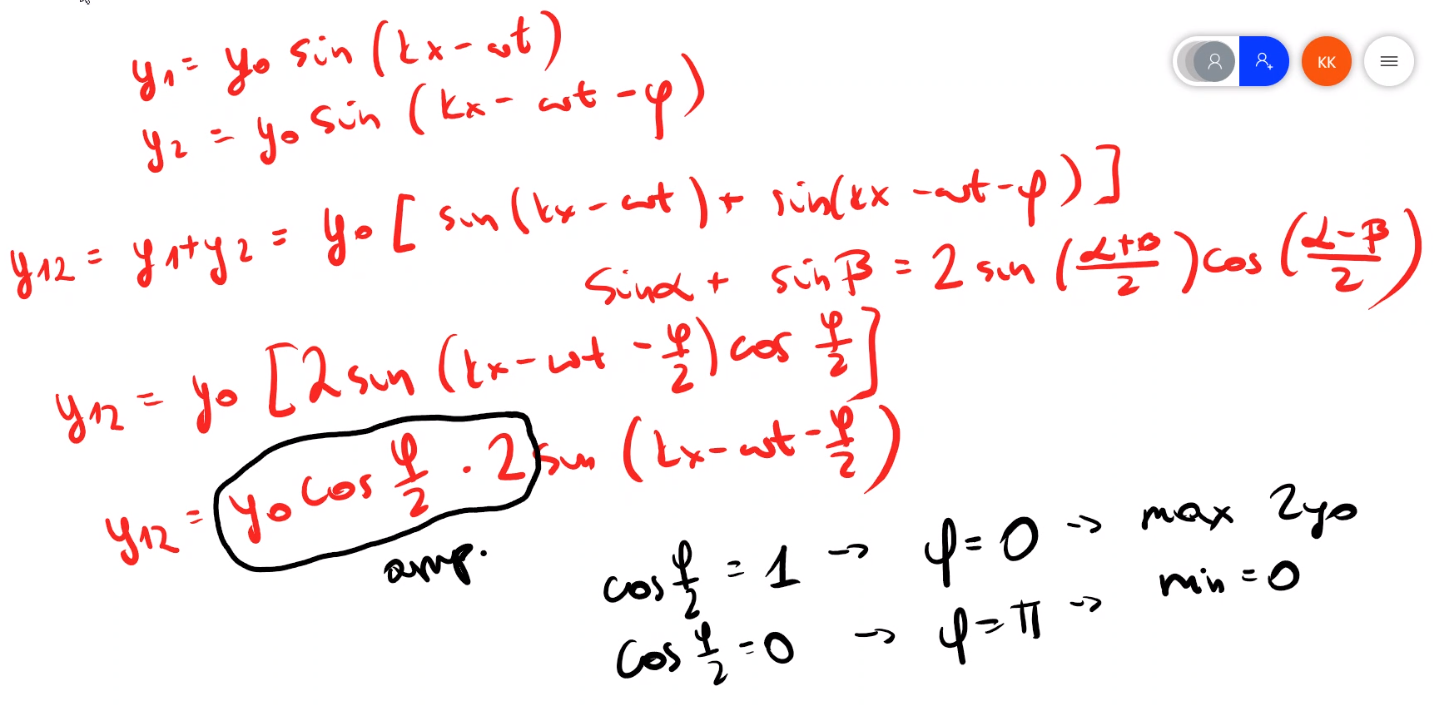 y₁ = y₀ sin (kx - ωt)
y₂ = y₀ sin (kx - ωt - φ)
KK
y₁₂ = y₁ + y₂ = y₀ [ sin (kx - ωt) + sin(kx - ωt - φ) ]
sinα + sinβ = 2 sin ((α+β)/2) cos ((α-β)/2)
y₁₂ = y₀ [2 sin (kx - ωt - φ/2) cos φ/2]
y₁₂ = y₀ cos φ/2 · 2 sin (kx - ωt - φ/2)
amp.
cos φ/2 = 1 → φ = 0 → max 2y₀
cos φ/2 = 0 → φ = π → min = 0